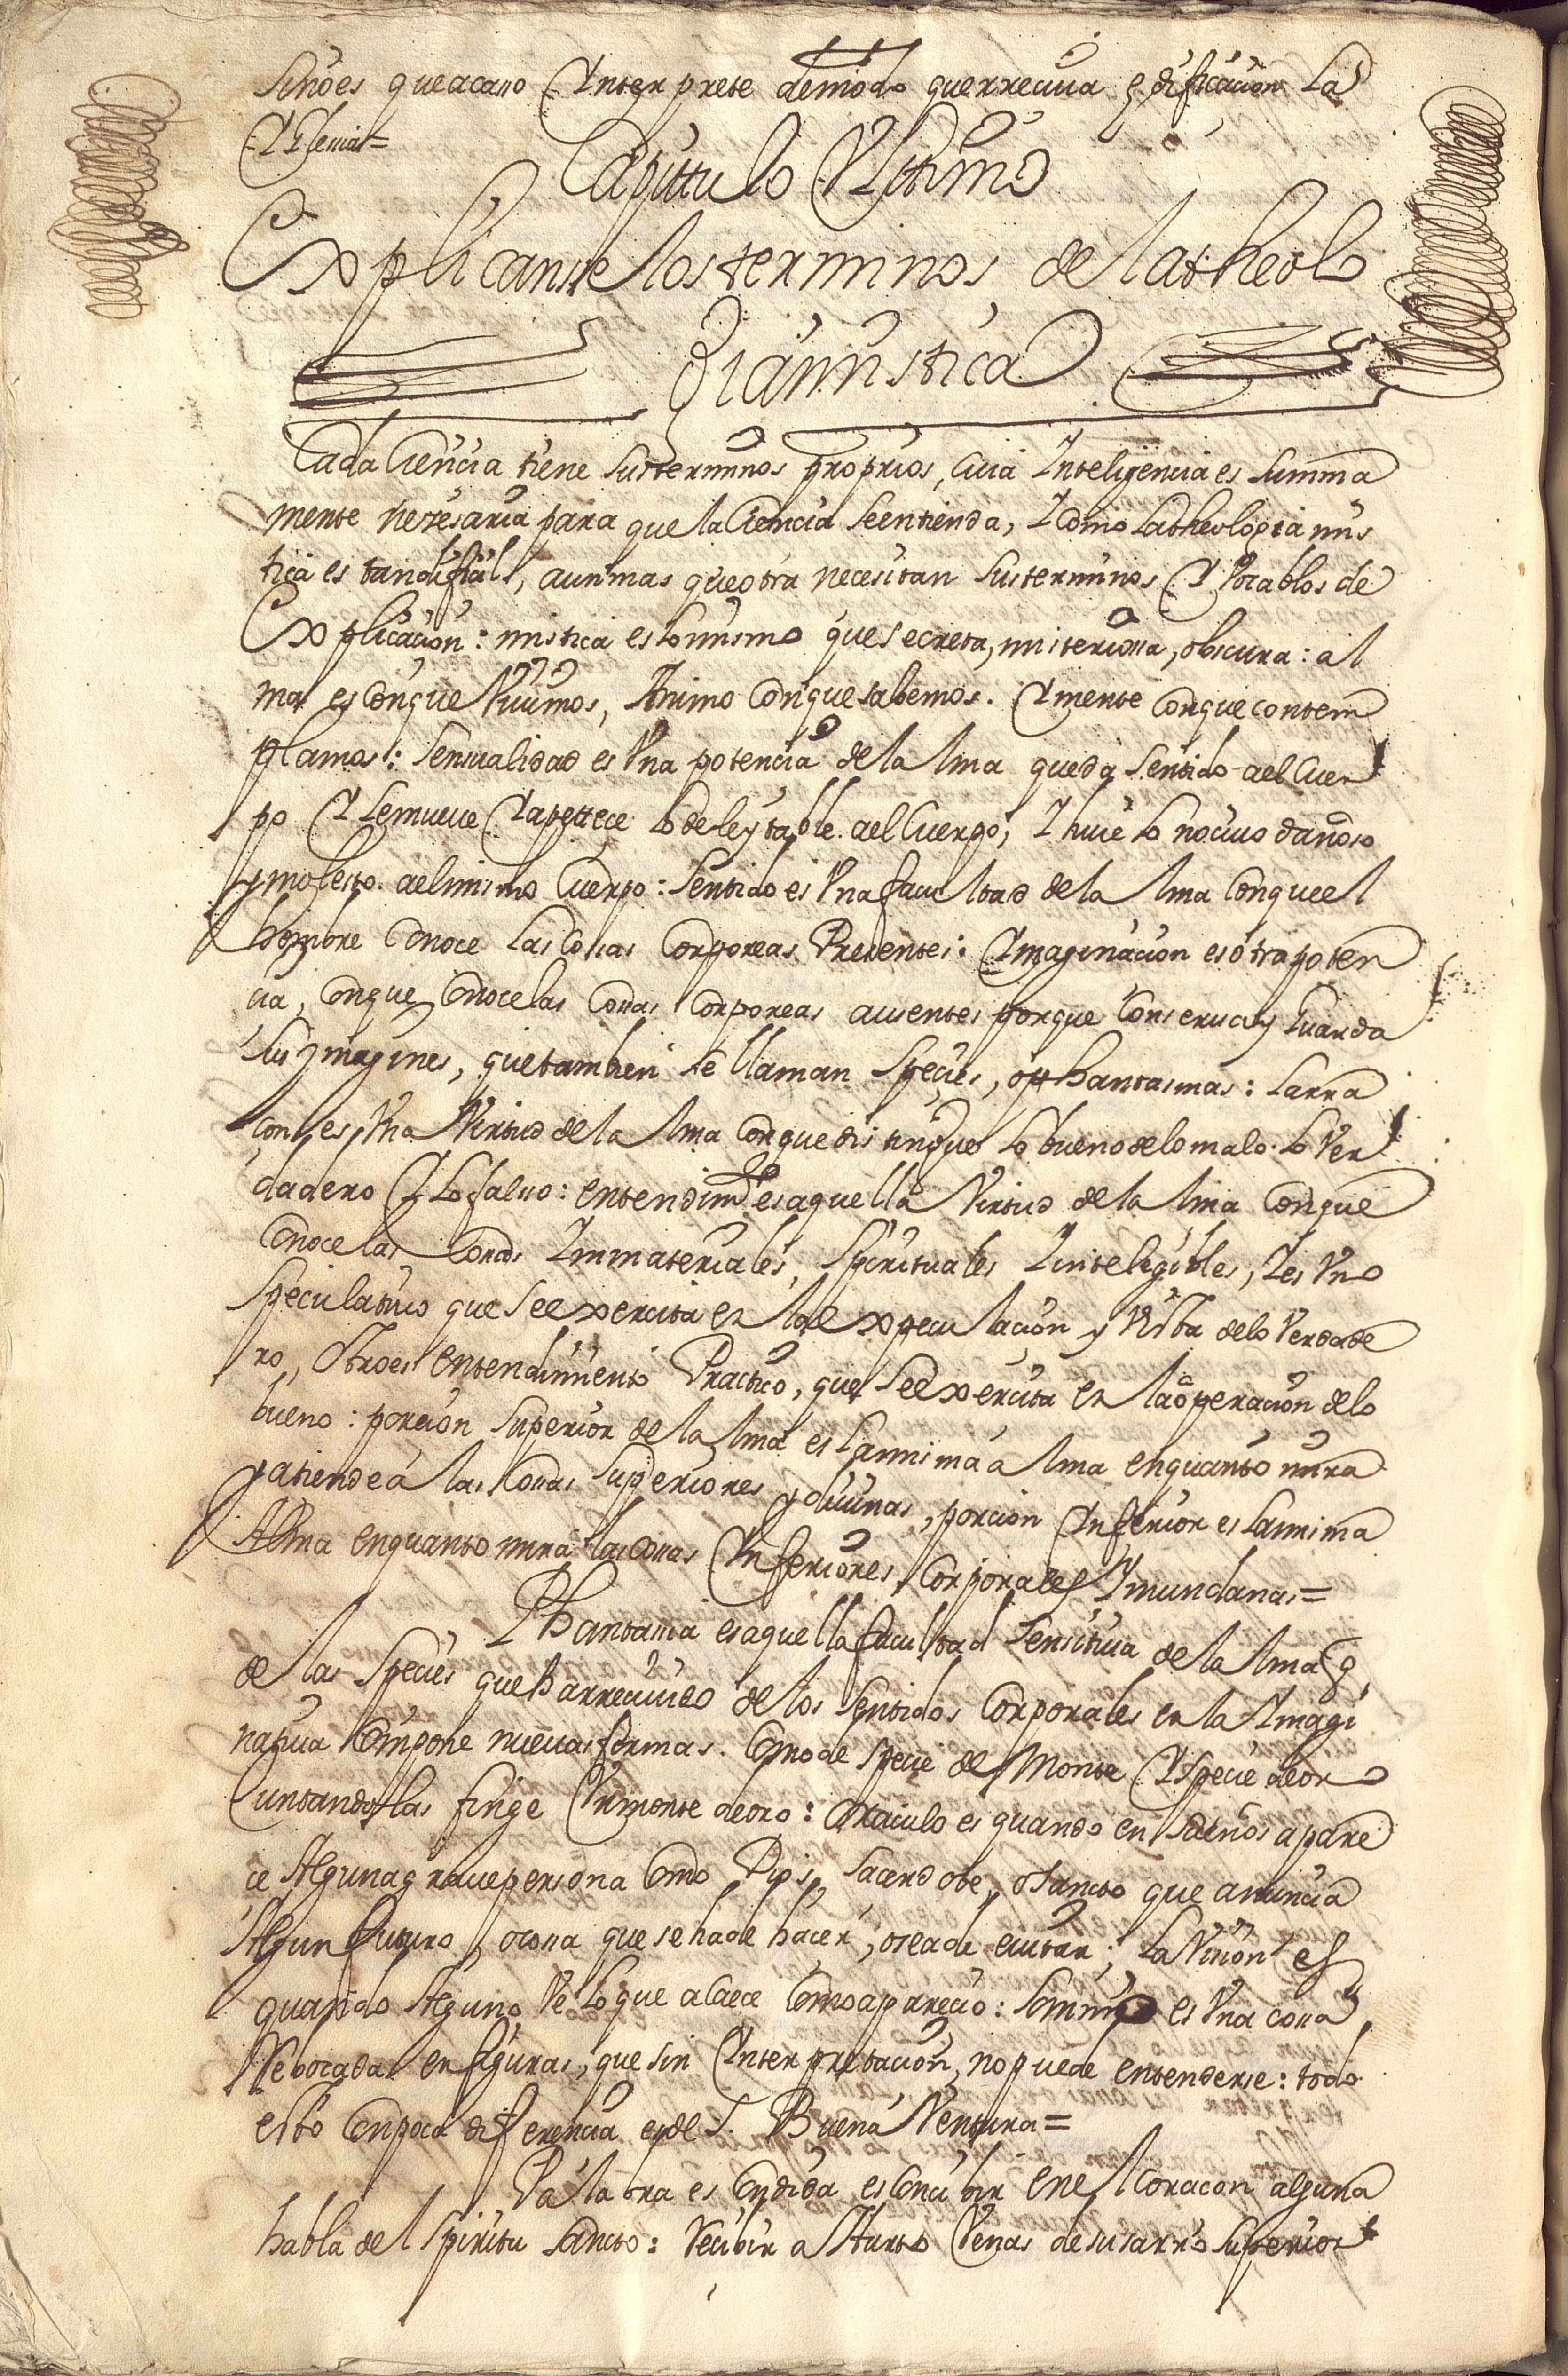 Sinoes queacaso Interprete demodo querreciua edificacion La
Iglesia=
Capittulo Vltimo
Explicansse los terminos de latheolo
giamistica
Cada Ciencia tiene susterminos proprios, cuia Inteligencia es summa
mente nezesaria para que la Ciencia Seentienda, Y como Latheologia mis
tica es tandificil, aunmas queotra necesitan susterminos Y Vocablos de
Explicacion: mistica es Lomismo que Secreta, misteriossa, obscura: al
ma es conque Viuimos, Animo Conque sabemos. Y mente Conque contem
plamos: Sensualidad es Vna potencia de la lma queda Sentido ael Cuer
po Y Semueue Y apettece Lo deleytable ael Cuerpo, Y huie Lo nociuo dañoso
y molesto aelmismo Cuerpo: Sentido es Vna facultad de la lma Conqueel
hombre Conoce Las Cossas Corporeas Presentes: Ymaginacion es otra poten
cia, Conque Conoce las Cossas Corporeas ausentes porque Conserua y Guarda
Sus ymagines, que tambien se llaman Species, o phantasmas: Larra
çon es Vna Virtud de la lma Conque distingue Lo bueno de lo malo. Lo Ver
dadero Y Lo falso: entendimto es aquella Virtud de la lma Conque
Conoce las Cosas Immateriales, Spirituales Y intelegibles, Y es Vno
Speculatiuo que Seexercita en la expeculacion y Vista delo Verdade
ro, Otro es entendimiento Practico, que Seexercita en la operacion delo
bueno: porcion Superior de la lma es Lamisma alma enquanto mira
y atiende a las Cossas Superiores y diuinas, porcion Inferior es Lamisma
Alma enquanto mira las cossas Inferiores, Corporales Y mundanas=
Phantasia es aquella facultad Sensitiua de la lma q
de las Species que harreciuido de los Sentidos Corporales en la Ymagi
natiua Compone nueuas formas. Como de specie de Monte Y specie de oro
Iuntandolas finge Vn monte de oro: Oraculo es quando en Sueños apare
ce Alguna graue persona Como Dios, Sacerdote, o Sancto que anuncia
Algun futuro, o cossa que se ha de hacer, o se a de euitar: La Vission es
quando Alguno Ve Lo que a Caece Como aparecio: Somnio es Vna cossa
Rebocada en figuras, que sin Interpretacion, no puede entenderse: todo
esto Con poca diferencia es de S. Buena Ventura=
Palabra esCondida es Conceuir en el Coracon alguna
habla del Spiritu Sancto: Reciuir a Hurto Venas de susurro superior